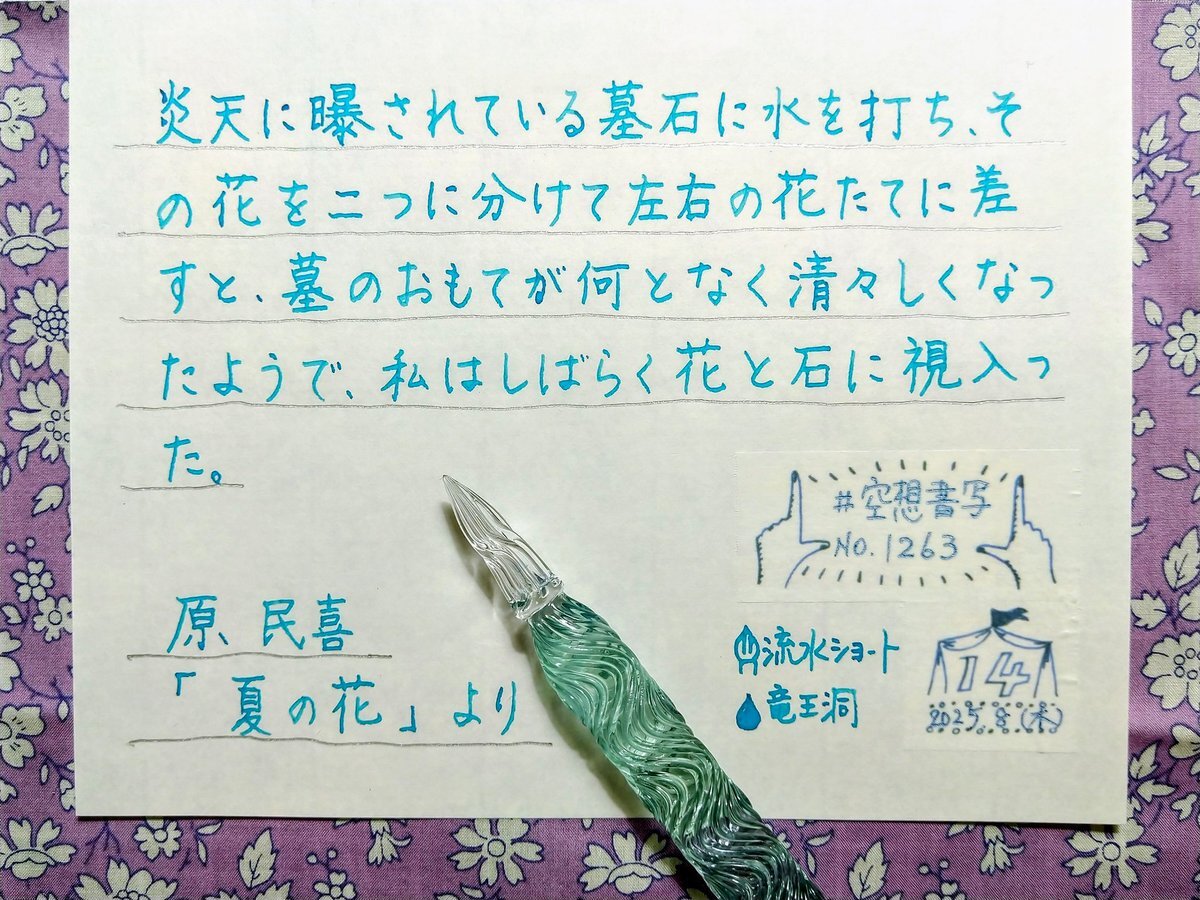 炎天に曝されている墓石に水を打ち、そ
の花を二つに分けて左右の花たてに差
すと、墓のおもてが何となく清々しくなっ
たようで、私はしばらく花と石に視入っ
た。
#空想書写
No.1263
原 民喜
「夏の花」より
流水ショート
竜王洞
14
2025.8(木)